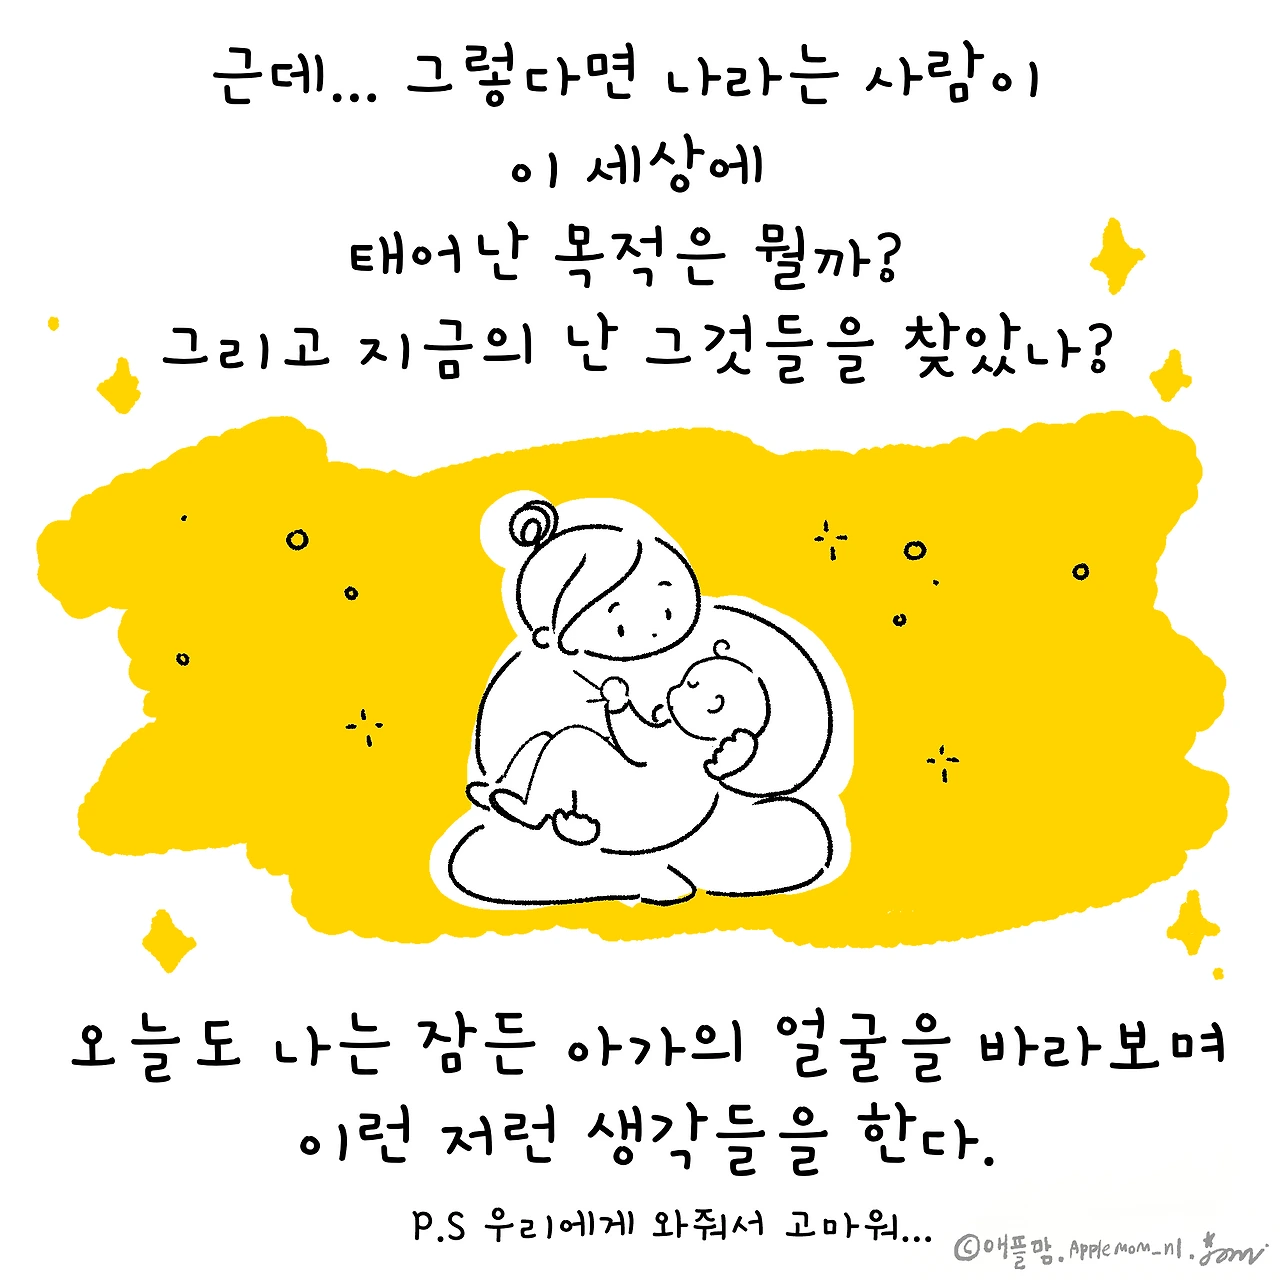 근데... 그렇다면 나라는 사람이
이 세상에
태어난 목적은 뭘까?
그리고 지금의 난 그것들을 찾았나?
오늘도 나는 잠든 아가의 얼굴을 바라보며
이런 저런 생각들을 한다.
P.S 우리에게 와줘서 고마워...
©애플맘. Applemom_nl.